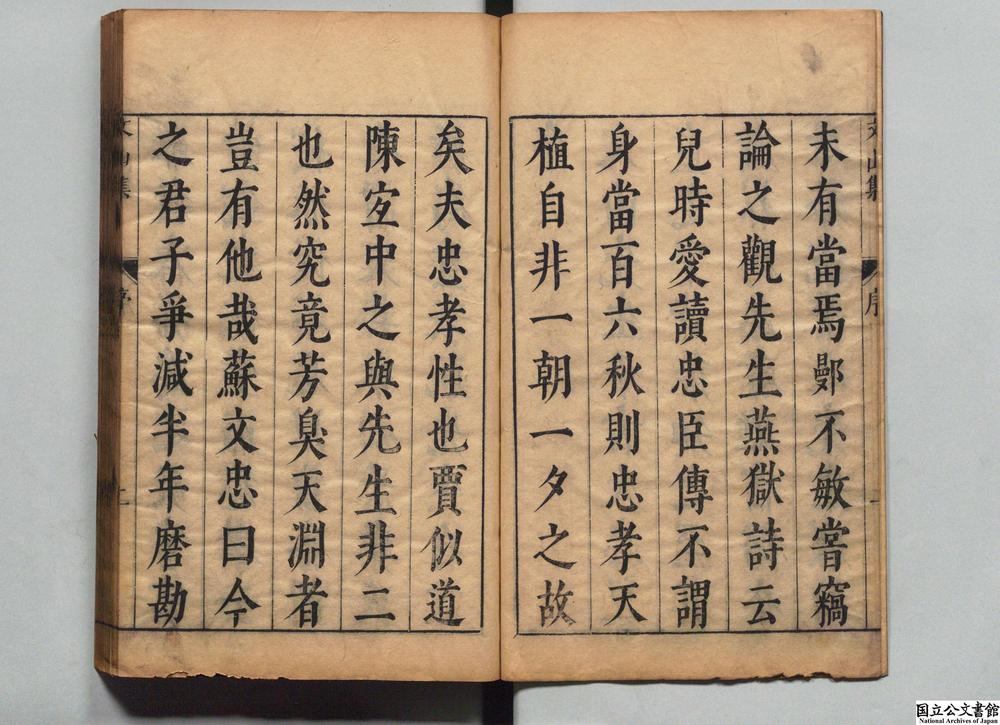 未有當焉鄭不敏嘗竊
論之觀先生燕獄詩云
兒時愛讀忠臣傳不謂
身當百六秋則忠孝天
植自非一朝一夕之故
文山集 序
矣夫忠孝性也賈似道
陳宐中之與先生非二
也然究竟芳臭天淵者
豈有他哉蘇文忠曰今
之君子爭減半年磨勘
文山集 序 二
国立公文書館
National Archives of Japan